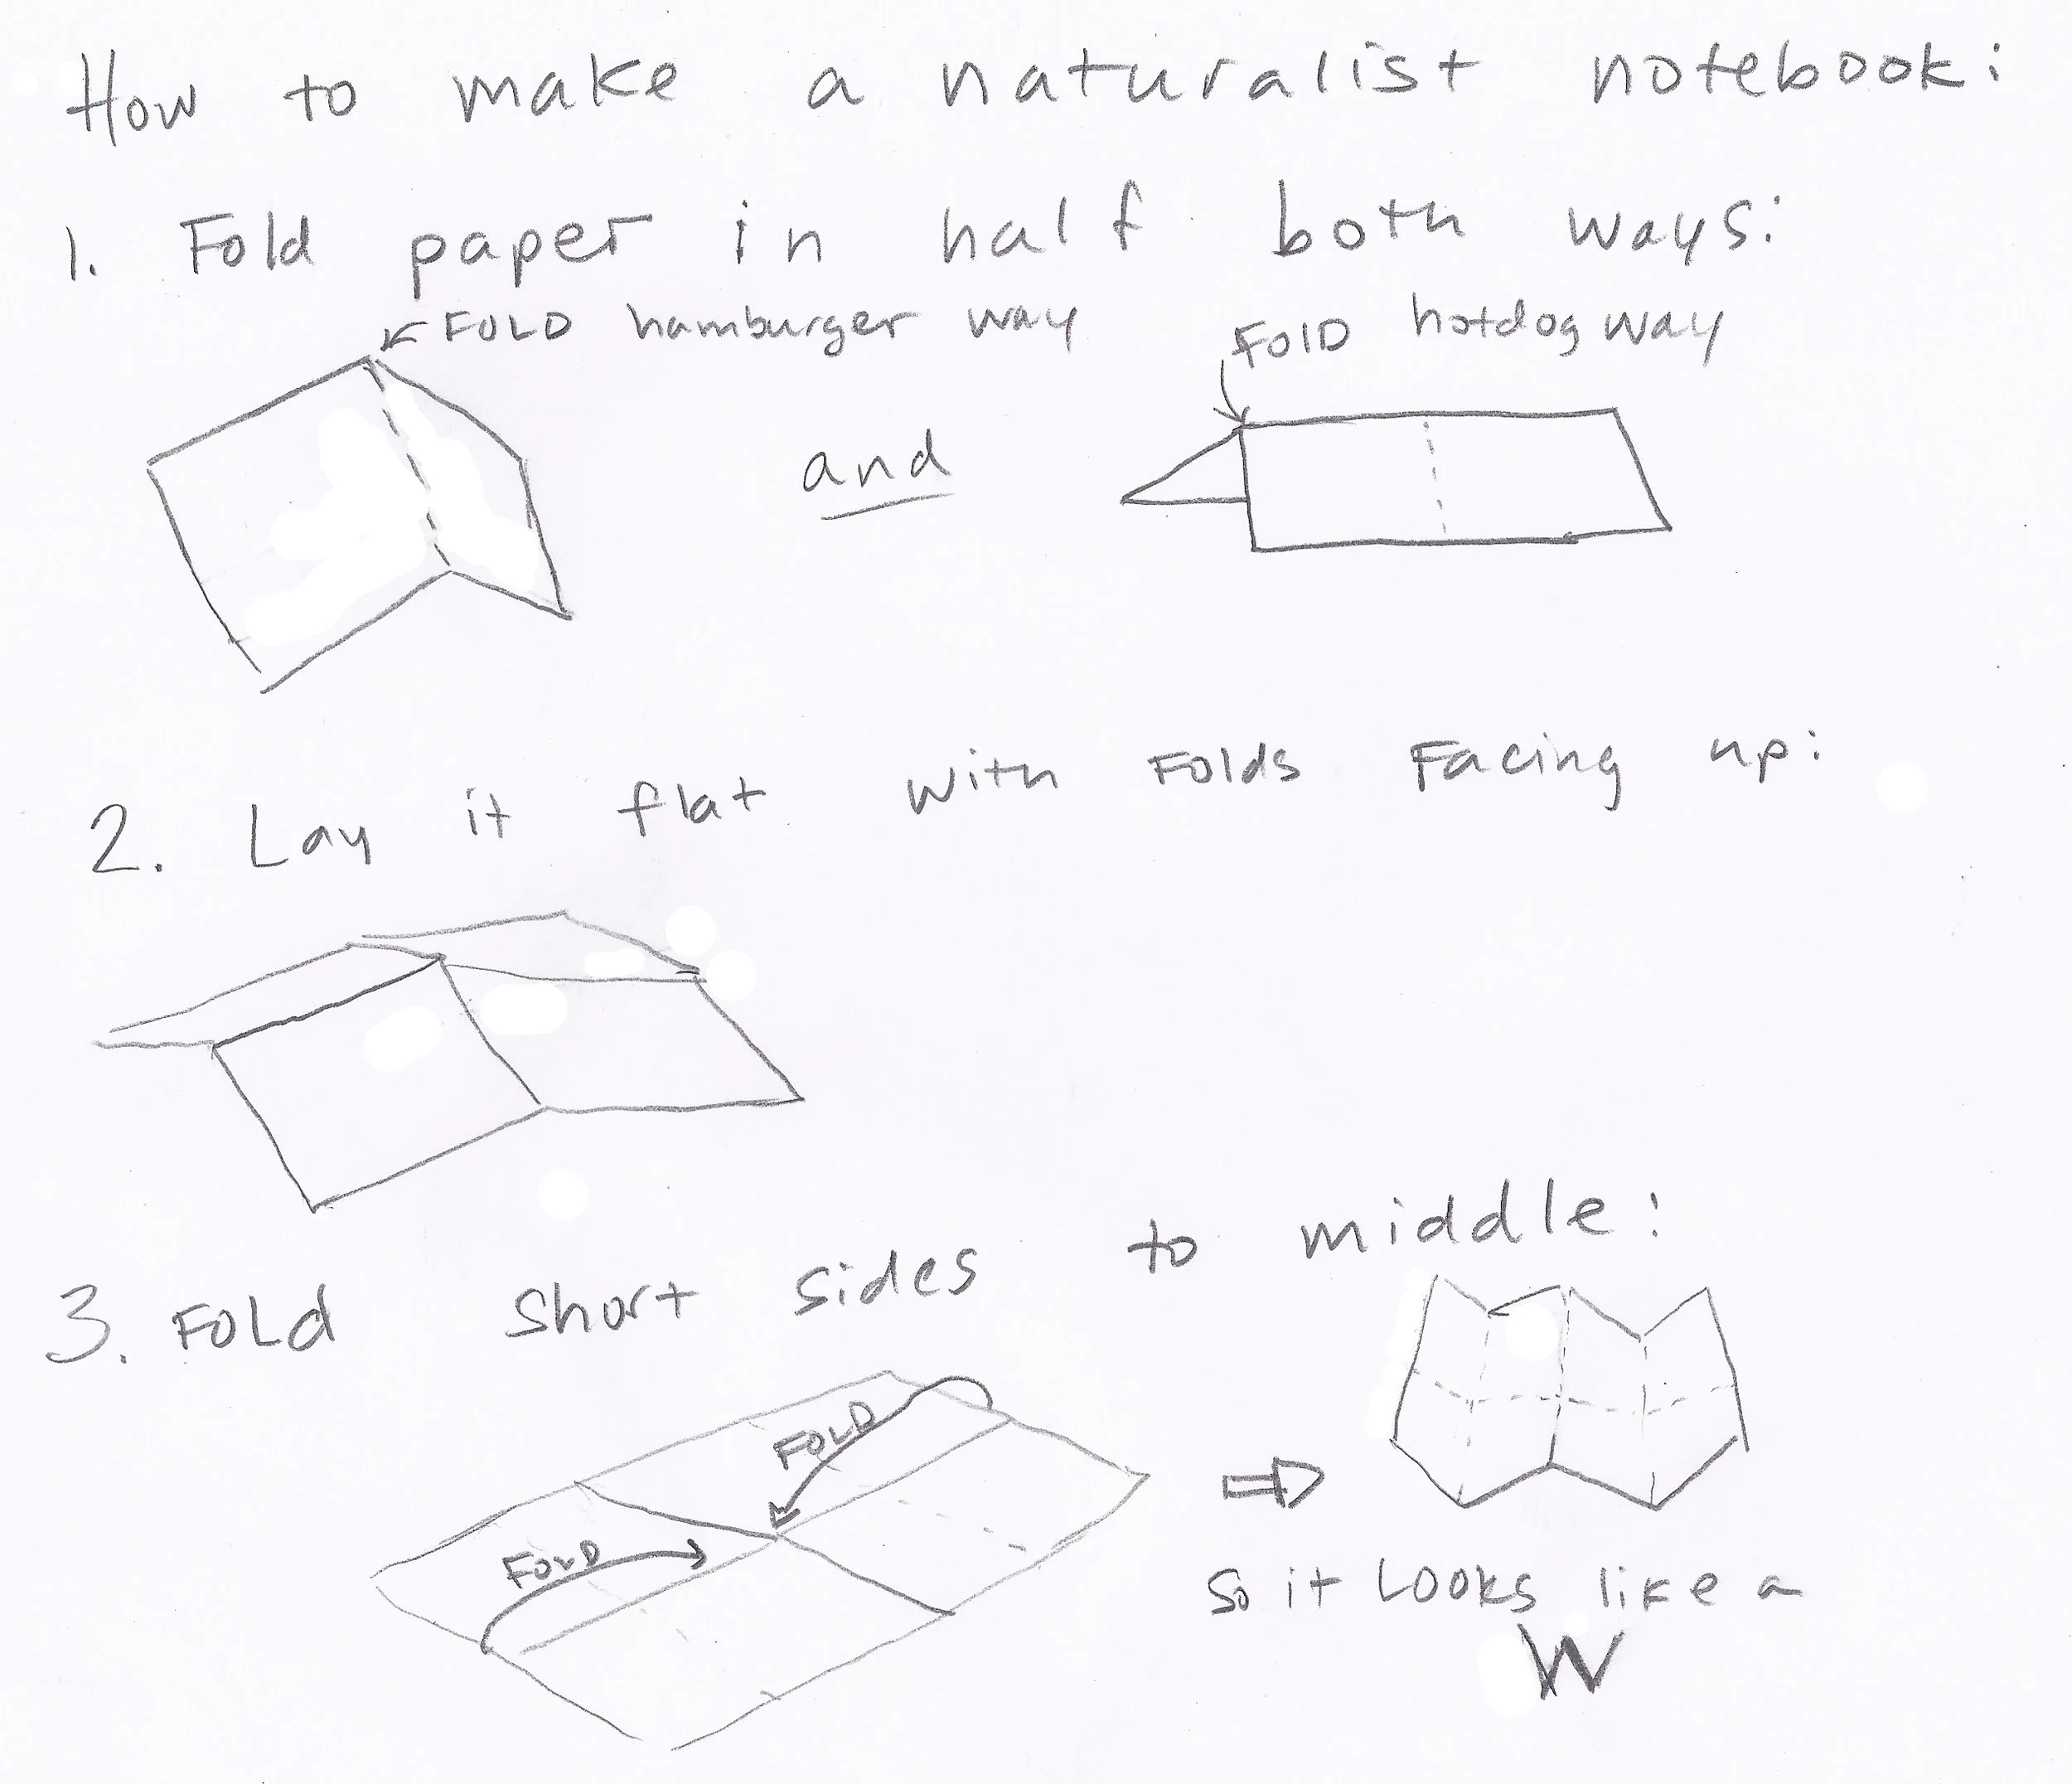 How to make a naturalist notebook:
1. Fold paper in half both ways:
FOLD hamburger way
FOLD hotdog way
and
2. Lay it flat with FOLDS Facing up:
3. FOLD Short Sides to middle:
FOLD
FOLD
So it LOOKS like a
W